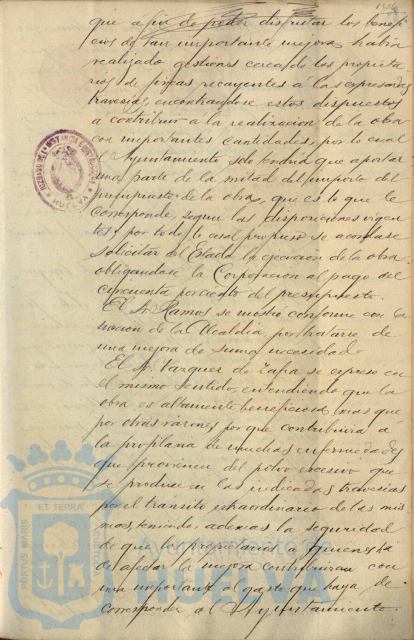 que a fin de poder disfrutar los benefi-
cios de tan importante mejora, había
realizado gestiones cerca de los propieta-
rios de fincas recayentes á las expresadas
travesías, encontrandose estos dispuestos
á contribuir á la realización de la obra
con importantes cantidades, por lo cual
el Ayuntamiento solo tendrá que aportar
una parte de la mitad del importe del
presupuesto de la obra, que es lo que le
corresponde, segun las disposiciones vigen-
tes; por todo lo cual propuso se acordase
solicitar del Estado la ejecucion de la obra
obligandose la Corporacion al pago del
cincuenta por ciento del presupuesto.
El Sr. Ramos se mostró conforme con la
mocion de la Alcaldía por tratarse de
una mejora de suma necesidad.
El Sr. Vazquez de Zafra se expresó en
el mismo sentido, entendiendo que la
obra es altamente beneficiosa, mas que
por otras razones por que contribuirá á
la profilaxia de muchas enfermedades
que provienen del polvo excesivo que
se produce en las indicadas travesías
por el transito extraordinario de las mis-
mas, teniendo ademas la seguridad
de que los propietarios á quienes
de afectar la mejora contribuiran con
una importante al gasto que haya de
corresponder al Ayuntamiento.
HUELVA
PORTUS MARIS
ET TERRÆ
Ayuntamiento de
HUELVA